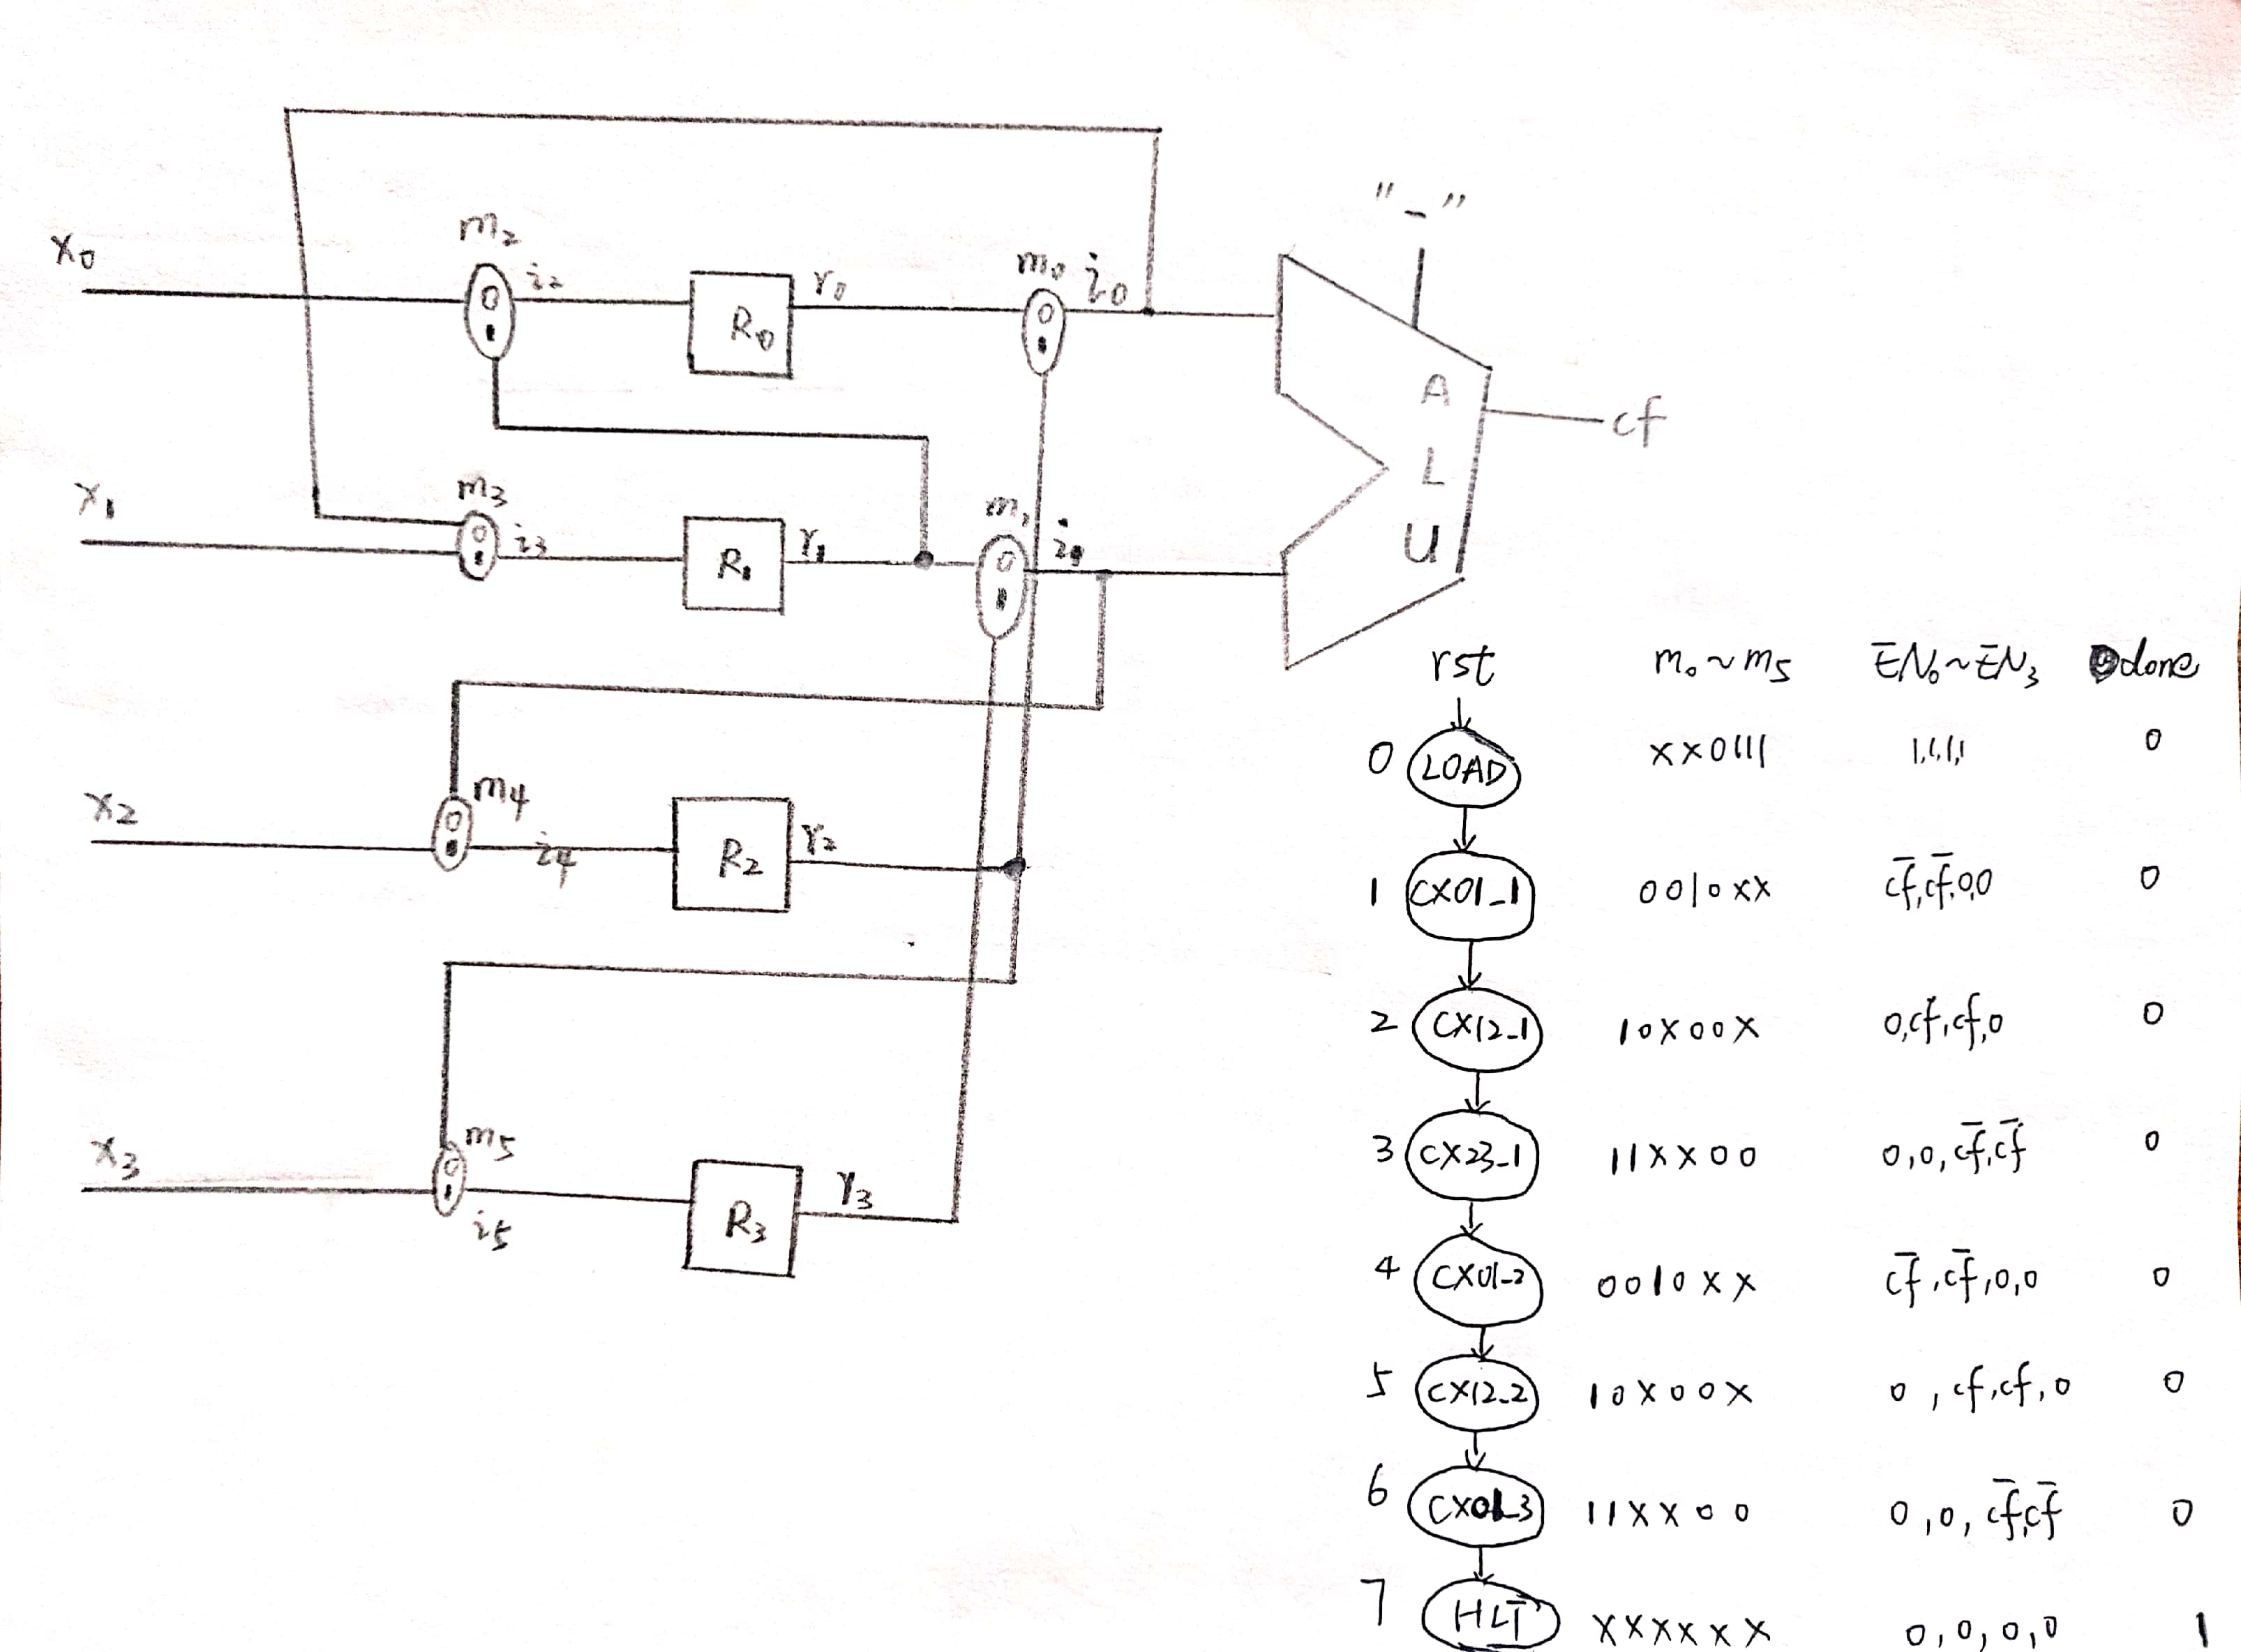 "-"
x0
m2
i2
R0
r0
m0
i0
A
L
U
cf
x1
m3
i3
R1
r1
m1
i1
x2
m4
i4
R2
r2
x3
m5
i5
R3
r3
rst m0~m5 E̅N0~E̅N3 done
0 LOAD xx0111 1,1,1,1 0
1 CX01_1 0010xx c̅f̅,c̅f̅,0,0 0
2 CX12_1 10x00x 0,cf,cf,0 0
3 CX23_1 11xx00 0,0,c̅f̅,c̅f̅ 0
4 CX01_2 0010xx c̅f̅,c̅f̅,0,0 0
5 CX12_2 10x00x 0,cf,cf,0 0
6 CX01_3 11xx00 0,0,c̅f̅,c̅f̅ 0
7 HLT xxxxxx 0,0,0,0 1